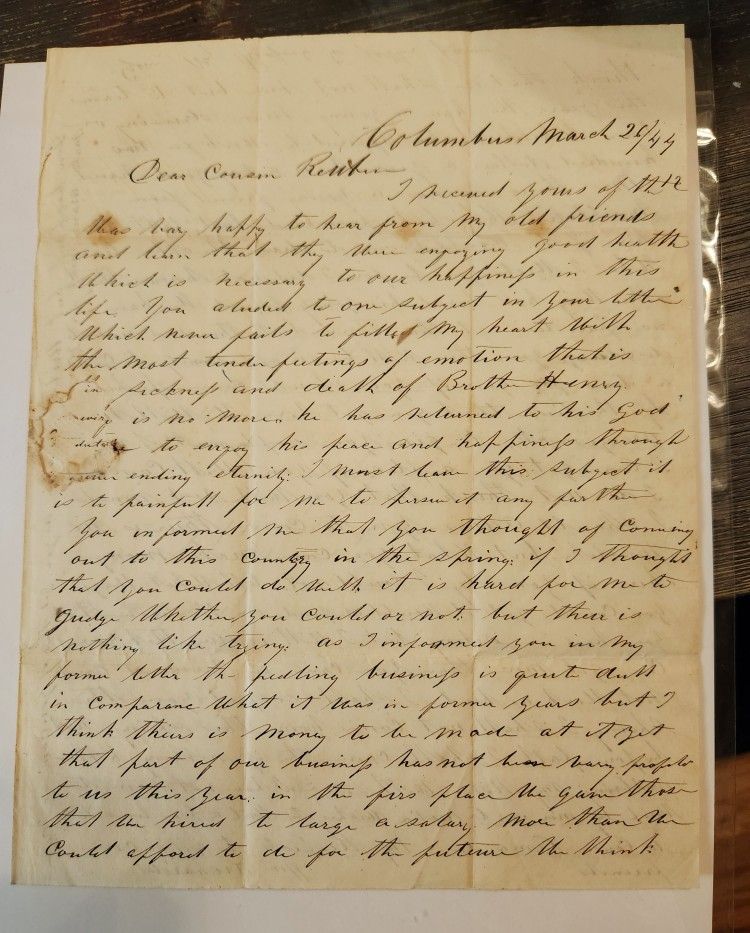 Columbus March 26/44
Dear Cousin Reuben
I received yours of the 12
Was vary happy to hear from my old friends
and learn that they were enjoying good health
Which is necessary to our happiness in this
life. You aluded to one subject in your letter
Which never fails to fill my heart With
the most tender feetings of emotion that is
in sickness and death of Brother Henry.
is no more. he has returned to his God
to enjoy his peace and happiness through
never ending eternity: I must leave this subject it
is to painfull for me to persue it any further
You informed me that you thought of Comeing
out to this Country in the spring: if I thought
that you Could do Well. it is hard for me to
Judge Whether you Could or not. but their is
nothing like trying: as I informed you in my
former letter the pedling business is quite dull
in Comparanc What it Was in former years but I
think theirs is Money to be made at it yet
that part of our business has not been vary
to us this year: in the firs place We gave those
that We hired to large a salary. More than We
Could afford to do for the future We think: